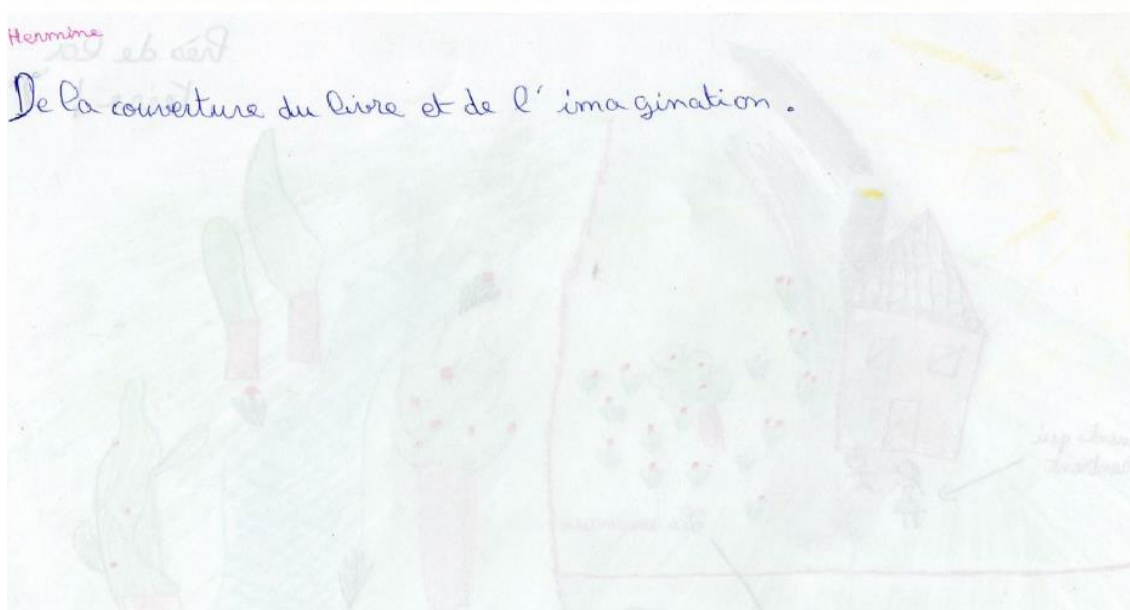 Hermine
De la couverture du livre et de l'imagination.